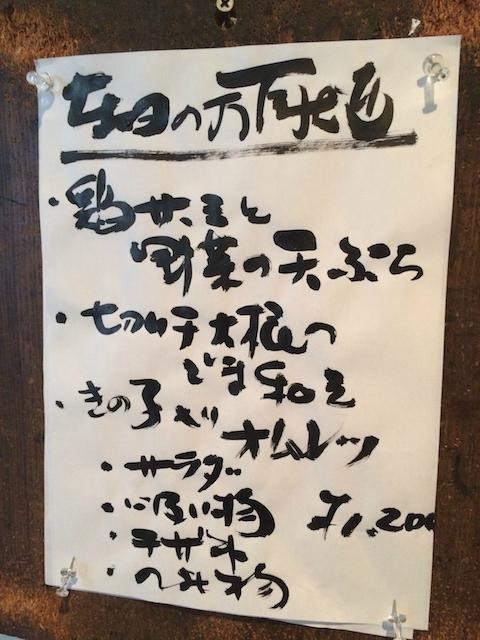 日の
・鶏ササミと
野菜の天ぷら
・切り干大根の
ごま和え
・きの子入り
オムレツ
・サラダ
・吸い物 ¥1,200
・デザート
・のみ物